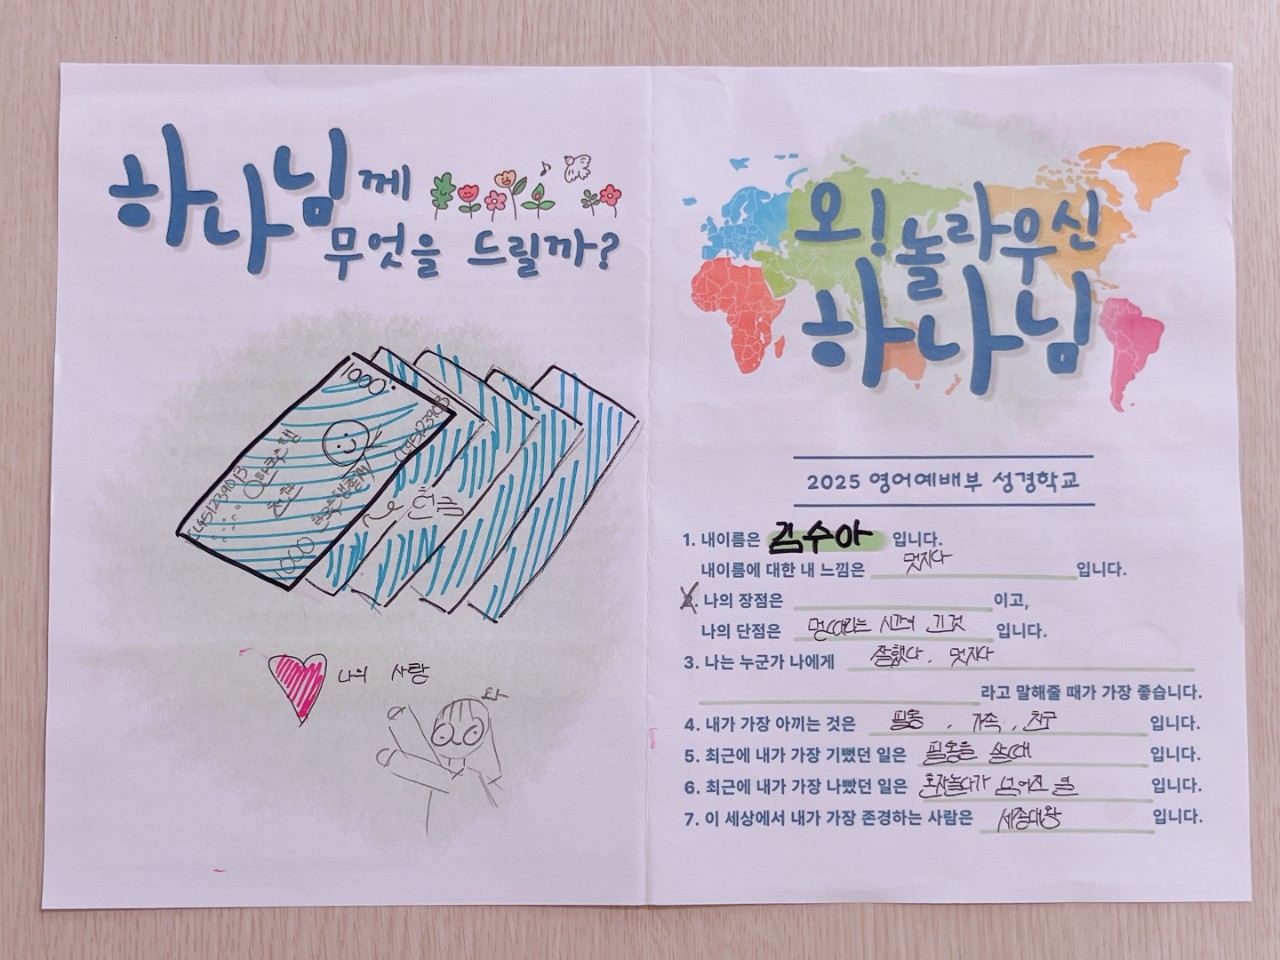 하나님께
무엇을 드릴까?
1000
한국은행
천원
1000
헌금
나의 사랑
와
오! 놀라우신
하나님
2025 영어예배부 성경학교
1. 내이름은 김수아 입니다.
내이름에 대한 내 느낌은 멋지다 입니다.
2. 나의 장점은 이고,
나의 단점은 멍때리는 시간이 긴것 입니다.
3. 나는 누군가 나에게 잘했다. 멋지다
라고 말해줄 때가 가장 좋습니다.
4. 내가 가장 아끼는 것은 필통, 가족, 친구 입니다.
5. 최근에 내가 가장 기뻤던 일은 필통을 샀때 입니다.
6. 최근에 내가 가장 나빴던 일은 혼자놀다가 넘어진 일 입니다.
7. 이 세상에서 내가 가장 존경하는 사람은 세종대왕 입니다.